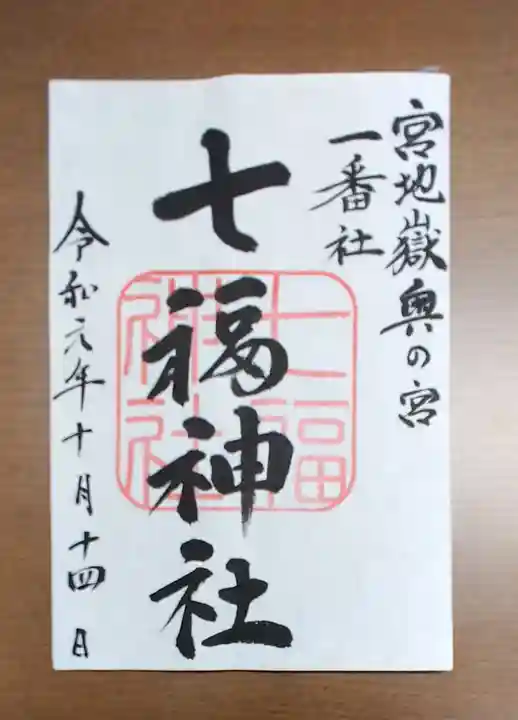 宮地嶽奥の宮
一番社
七福神社
七福神社
令和六年十月十四日